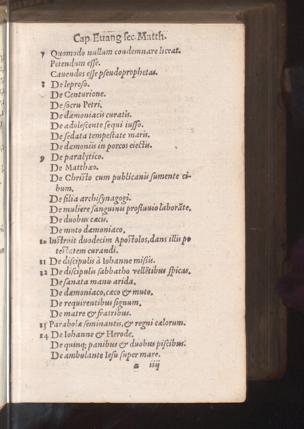 Cap. Euang sec. Matth.
7 Quomodo nullum condemnare liceat.
Petendum esse.
Cauendos esse pseudoprophetas.
8 De leproso.
De Centurione.
De socru Petri.
De dæmoniacis curatis.
De adolescente sequi iusso.
De sedata tempestate maris.
De dæmoniis in porcos eiectis.
9 De paralytico.
De Matthæo.
De Christo cum publicanis sumente ci-
bum.
De filia archisynagogi.
De muliere sanguinis profluuio laborāte.
De duobus cæcis.
De muto dæmoniaco.
10 Instruit duodecim Apostolos, dans illis po
testatem curandi.
11 De discipulis à Iohanne missis.
12 De discipulis sabbatho vellētibus spicas.
De sanata manu arida.
De dæmoniaco, cæco & muto.
De requirentibus signum.
De matre & fratribus.
13 Parabolæ seminantis, & regni cælorum.
14 De Iohanne & Herode.
De quinq; panibus & duobus piscibus.
De ambulante Iesu super mare.
a iiij